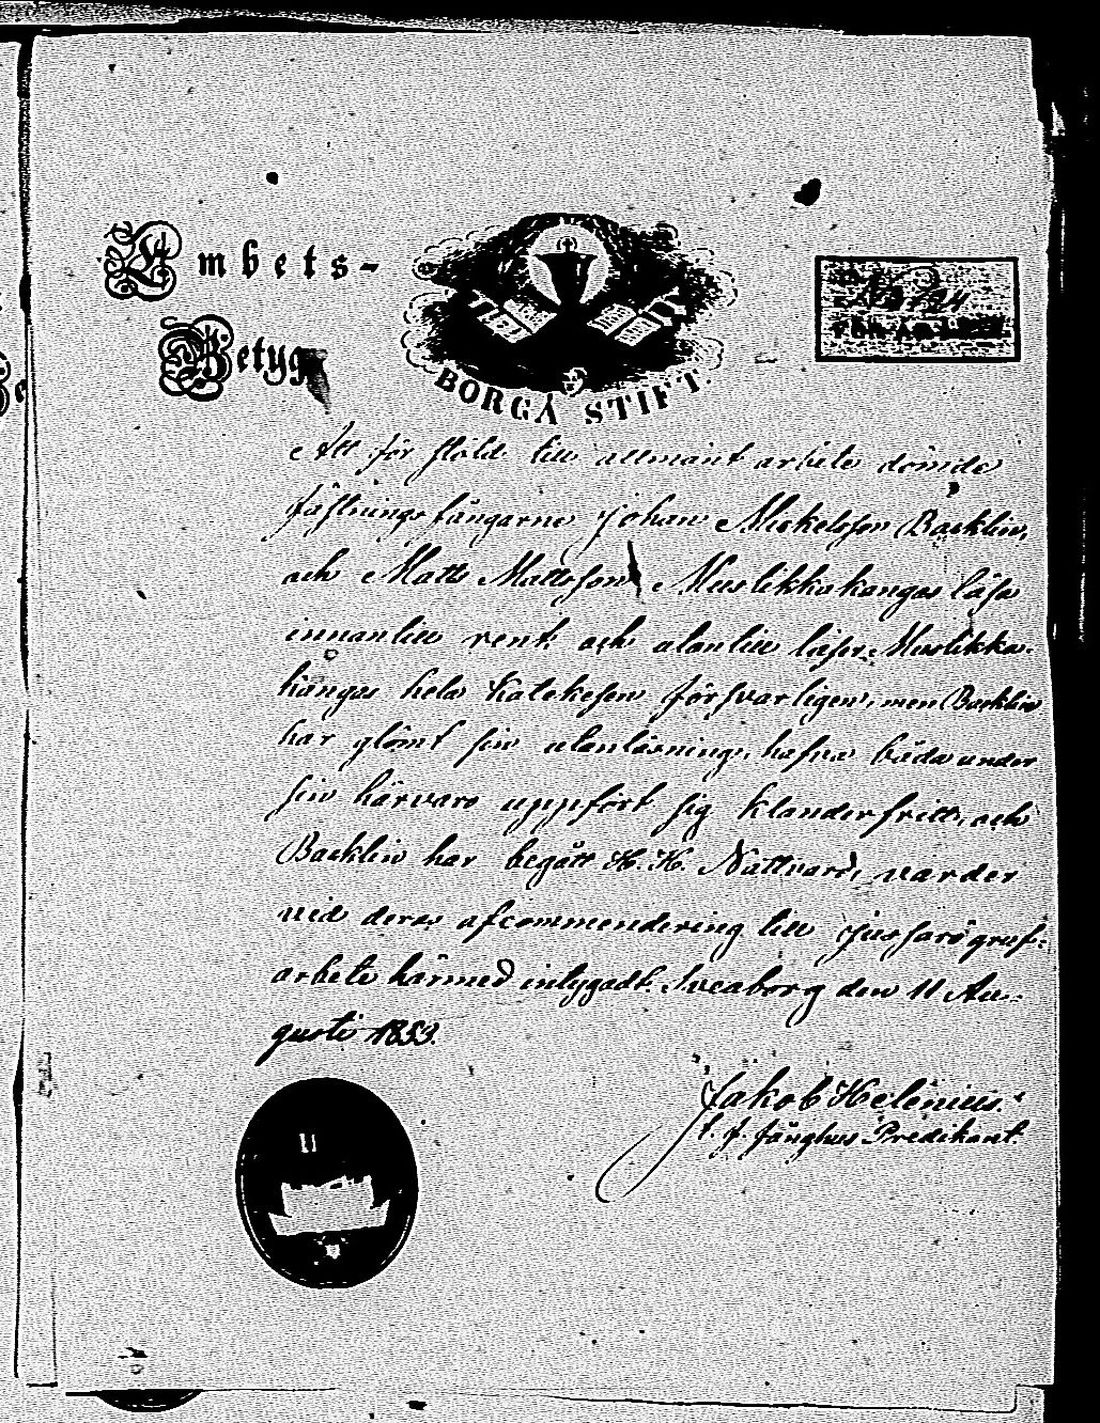 Embets-
Betyg
BORGÅ STIFT.
Att för stöld till allmänt arbete dömde
fästningsfångarne Johan Mickelsson Backlin,
och Matts Mattsson Muslikkakangas läsa
innantill rent och utantill läser Muslikka-
kangas hela Katekesen försvarligen, men Backlin
har glömt sin utanläsning, hafva båda under
sin härvaro uppfört sig klanderfritt, och
Backlin har begått H. H. Nattvard, varder
vid deras afcommendering till Jussarö gruf-
arbete härmed intygadt. Sveaborg den 11 Au-
gusti 1853.
Jakob Helenius.
t. f. fånghus Predikant.